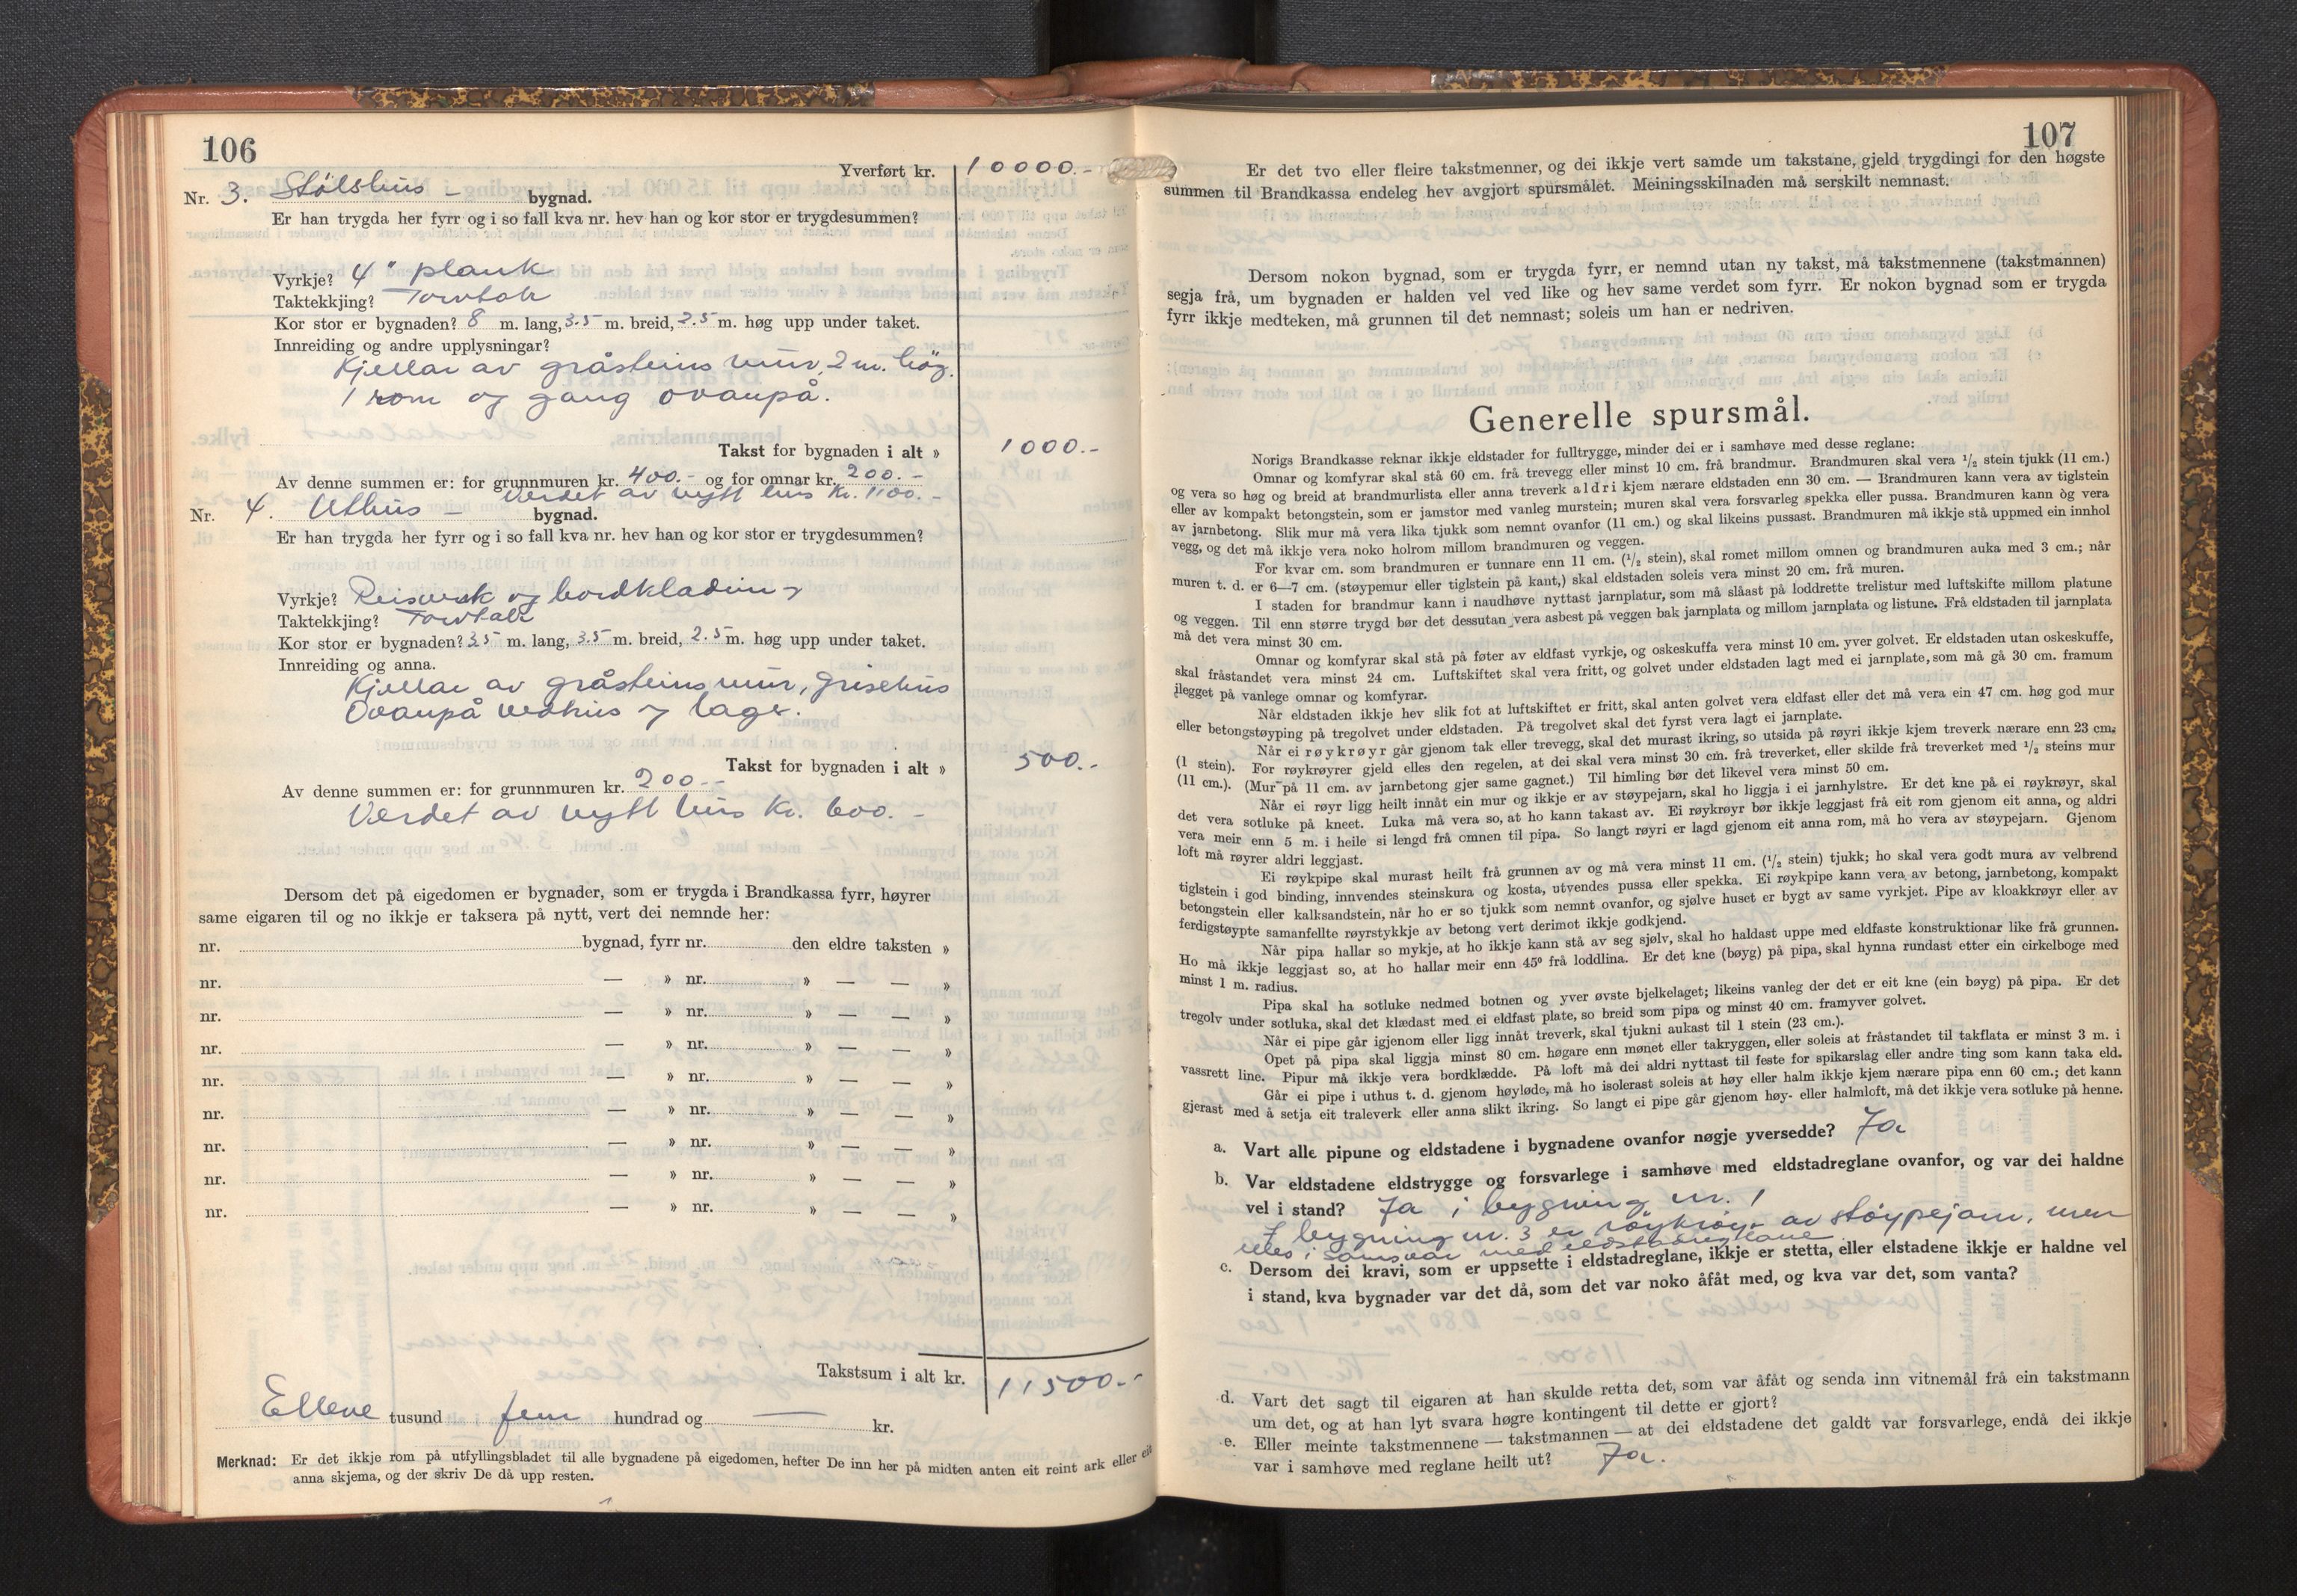 106
Yverført kr. 10000.-
Nr. 3. Stølshus - bygnad.
Er han trygda her fyrr og i so fall kva nr. hev han og kor stor er trygdesummen?
Vyrkje? 4" plank
Taktekkjing? Torvtak
Kor stor er bygnaden? 8 m. lang, 3.5 m. breid, 2.5 m. høg upp under taket.
Innreiding og andre upplysningar?
Kjellar av gråsteinsmur, 2 m. høg.
1 rom og gang ovanpå.
Takst for bygnaden i alt » 1000.-
Av denne summen er: for grunnmuren kr. 400.- og for omnar kr. 200.-
Verdet av nytt hus kr. 1100.-
Nr. 4. Uthus - bygnad.
Er han trygda her fyrr og i so fall kva nr. hev han og kor stor er trygdesummen?
Vyrkje? Reisverk og bordkladning
Taktekkjing? Torvtak
Kor stor er bygnaden? 3.5 m. lang, 3.5 m. breid, 2.5 m. høg upp under taket.
Innreiding og anna.
Kjellar av gråsteinsmur, grisehus
Ovanpå vedhus og lager.
Takst for bygnaden i alt » 500.-
Av denne summen er: for grunnmuren kr. 200.-
Verdet av nytt hus kr. 600.-
Dersom det på eigedomen er bygnader, som er trygda i Brandkassa fyrr, høyrer
same eigaren til og no ikkje er taksera på nytt, vert dei nemnde her:
nr. bygnad, fyrr nr. den eldre taksten »
nr. — » nr. » — — »
nr. — » nr. » — — »
nr. — » nr. » — — »
nr. — » nr. » — — »
nr. — » nr. » — — »
nr. — » nr. » — — »
nr. — » nr. » — — »
nr. — » nr. » — — »
Takstsum i alt kr. 11500.-
Elleve tusund fem hundrad og — kr.
Merknad: Er det ikkje rom på utfyllingsbladet til alle bygnadene på eigedomen, hefter De inn her på midten anten eit reint ark eller eit
anna skjema, og der skriv De då upp resten.
107
Er det tvo eller fleire takstmenner, og dei ikkje vert samde um takstane, gjeld trygdingi for den høgste
summen til Brandkassa endeleg hev avgjort spursmålet. Meiningsskilnaden må serskilt nemnast.
Dersom nokon bygnad, som er trygda fyrr, er nemnd utan ny takst, må takstmennene (takstmannen)
segja frå, um bygnaden er halden vel ved like og hev same verdet som fyrr. Er nokon bygnad som er trygda
fyrr ikkje medteken, må grunnen til det nemnast; soleis um han er nedriven.
Generelle spursmål.
Norigs Brandkasse reknar ikkje eldstader for fulltrygge, minder dei er i samhøve med desse reglane:
Omnar og komfyrar skal stå 60 cm. frå trevegg eller minst 10 cm. frå brandmur. Brandmuren skal vera 1/2 stein tjukk (11 cm.)
og vera so høg og breid at brandmurlista eller anna treverk aldri kjem nærare eldstaden enn 30 cm. — Brandmuren kann vera av tiglstein
eller av kompakt betongstein, som er jamstor med vanleg murstein; muren skal vera forsvarleg spekka eller pussa. Brandmuren kann òg vera
av jarnbetong. Slik mur må vera lika tjukk som nemnt ovanfor (11 cm.) og skal likeins pussast. Brandmuren må ikkje stå uppmed ein innhol
vegg, og det må ikkje vera noko holrom millom brandmuren og veggen.
For kvar cm. som brandmuren er tunnare enn 11 cm. (1/2 stein), skal romet millom omnen og brandmuren auka med 3 cm.; når
muren t. d. er 6—7 cm. (støypemur eller tiglstein på kant,) skal eldstaden soleis vera minst 20 cm. frå muren.
I staden for brandmur kann i naudhøve nyttast jarnplatur, som må slåast på loddrette trelistur med luftskifte millom platune
og veggen. Til enn større trygd bør det dessutan vera asbest på veggen bak jarnplata og millom jarnplata og listune. Frå eldstaden til jarnplata
må det vera minst 30 cm.
Omnar og komfyrar skal stå på føter av eldfast vyrkje, og oskeskuffa vera minst 10 cm. yver golvet. Er eldstaden utan oskeskuffe,
skal fråstandet vera minst 24 cm. Luftskiftet skal vera fritt, og golvet under eldstaden lagt med ei jarnplate, som må gå 30 cm. framum
ilegget på vanlege omnar og komfyrar.
Når eldstaden ikkje hev slik fot at luftskiftet er fritt, skal anten golvet vera eldfast eller det må vera ein 47 cm. høg god mur
eller betongstøyping på tregolvet under eldstaden. På tregolvet skal det fyrst vera lagt ei jarnplate.
Når ei røykrøyr går gjenom tak eller trevegg, skal det murast ikring, so utsida på røyri ikkje kjem treverk nærare enn 23 cm.
(1 stein). For røykrøyrer gjeld elles den regelen, at dei skal vera minst 30 cm. frå treverket, eller skilde frå treverket med 1/2 steins mur
(11 cm.). (Mur på 11 cm. av jarnbetong gjer same gagnet.) Til himling bør det likevel vera minst 50 cm.
Når ei røyr ligg heilt innåt ein mur og ikkje er av støypejarn, skal ho liggja i ei jarnhylstre. Er det kne på ei røykrøyr, skal
det vera sotluke på kneet. Luka må vera so, at ho kann takast av. Ei røykrøyr bør ikkje leggjast frå eit rom gjenom eit anna, og aldri
vera meir enn 5 m. i heile si lengd frå omnen til pipa. So langt røyri er lagd gjenom eit anna rom, må ho vera av støypejarn. Gjenom
loft må røyrer aldri leggjast.
Ei røykpipe skal murast heilt frå grunnen av og må vera minst 11 cm. (1/2 stein) tjukk; ho skal vera godt mura av velbrend
tiglstein i god binding, innvendes steinskura og kosta, utvendes pussa eller spekka. Ei røykpipe kann vera av betong, jarnbetong, kompakt
betongstein eller kalksandstein, når ho er so tjukk som nemnt ovanfor, og sjølve huset er bygt av same vyrkjet. Pipe av kloakkrøyr eller av
ferdigstøypte samanfellte røyrstykkje av betong vert derimot ikkje godkjend.
Når pipa hallar so mykje, at ho ikkje kann stå av seg sjølv, skal ho haldast uppe med eldfaste konstruktionar like frå grunnen.
Ho må ikkje leggjast so, at ho hallar meir enn 45° frå loddlina. Er det kne (bøyg) på pipa, skal hynna rundast etter ein cirkelboge med
minst 1 m. radius.
Pipa skal ha sotluke nedmed botnen og yver øvste bjelkelaget; likeins vanleg der det er eit kne (ein bøyg) på pipa. Er det
tregolv under sotluka, skal det klædast med ei eldfast plate, so breid som pipa og minst 40 cm. framyver golvet.
Når ei pipe går igjenom eller ligg innåt treverk, skal tjukni aukast til 1 stein (23 cm.).
Opet på pipa skal liggja minst 80 cm. høgare enn mønet eller takryggen, eller soleis at fråstandet til takflata er minst 3 m. i
vassrett line. Pipur må ikkje vera bordklædde. På loft må dei aldri nyttast til feste for spikarslag eller andre ting som kann taka eld.
Går ei pipe i uthus t. d. gjenom høyløde, må ho isolerast soleis at høy eller halm ikkje kjem nærare pipa enn 60 cm.; det kann
gjerast med å setja eit traleverk eller anna slikt ikring. So langt ei pipe går gjenom høy- eller halmloft, må det ikkje vera sotluke på henne.
a. Vart alle pipune og eldstadene i bygnadene ovanfor nøgje yversedde? Ja
b. Var eldstadene eldstrygge og forsvarlege i samhøve med eldstadreglane ovanfor, og var dei haldne
vel i stand? Ja i bygning nr. 1
I bygning nr. 3 er røykrøyr av støypejarn, men
elles i samsvar med eldstadreglane
c. Dersom dei kravi, som er uppsette i eldstadreglane, ikkje er stetta, eller elstadene ikkje er haldne vel
i stand, kva bygnader var det då, som det var noko åfåt med, og kva var det, som vanta?
d. Vart det sagt til eigaren at han skulde retta det, som var åfåt og senda inn vitnemål frå ein takstmann
um det, og at han lyt svara høgre kontingent til dette er gjort?
e. Eller meinte takstmennene — takstmannen — at dei eldstadene det galdt var forsvarlege, endå dei ikkje
var i samhøve med reglane heilt ut? Ja.